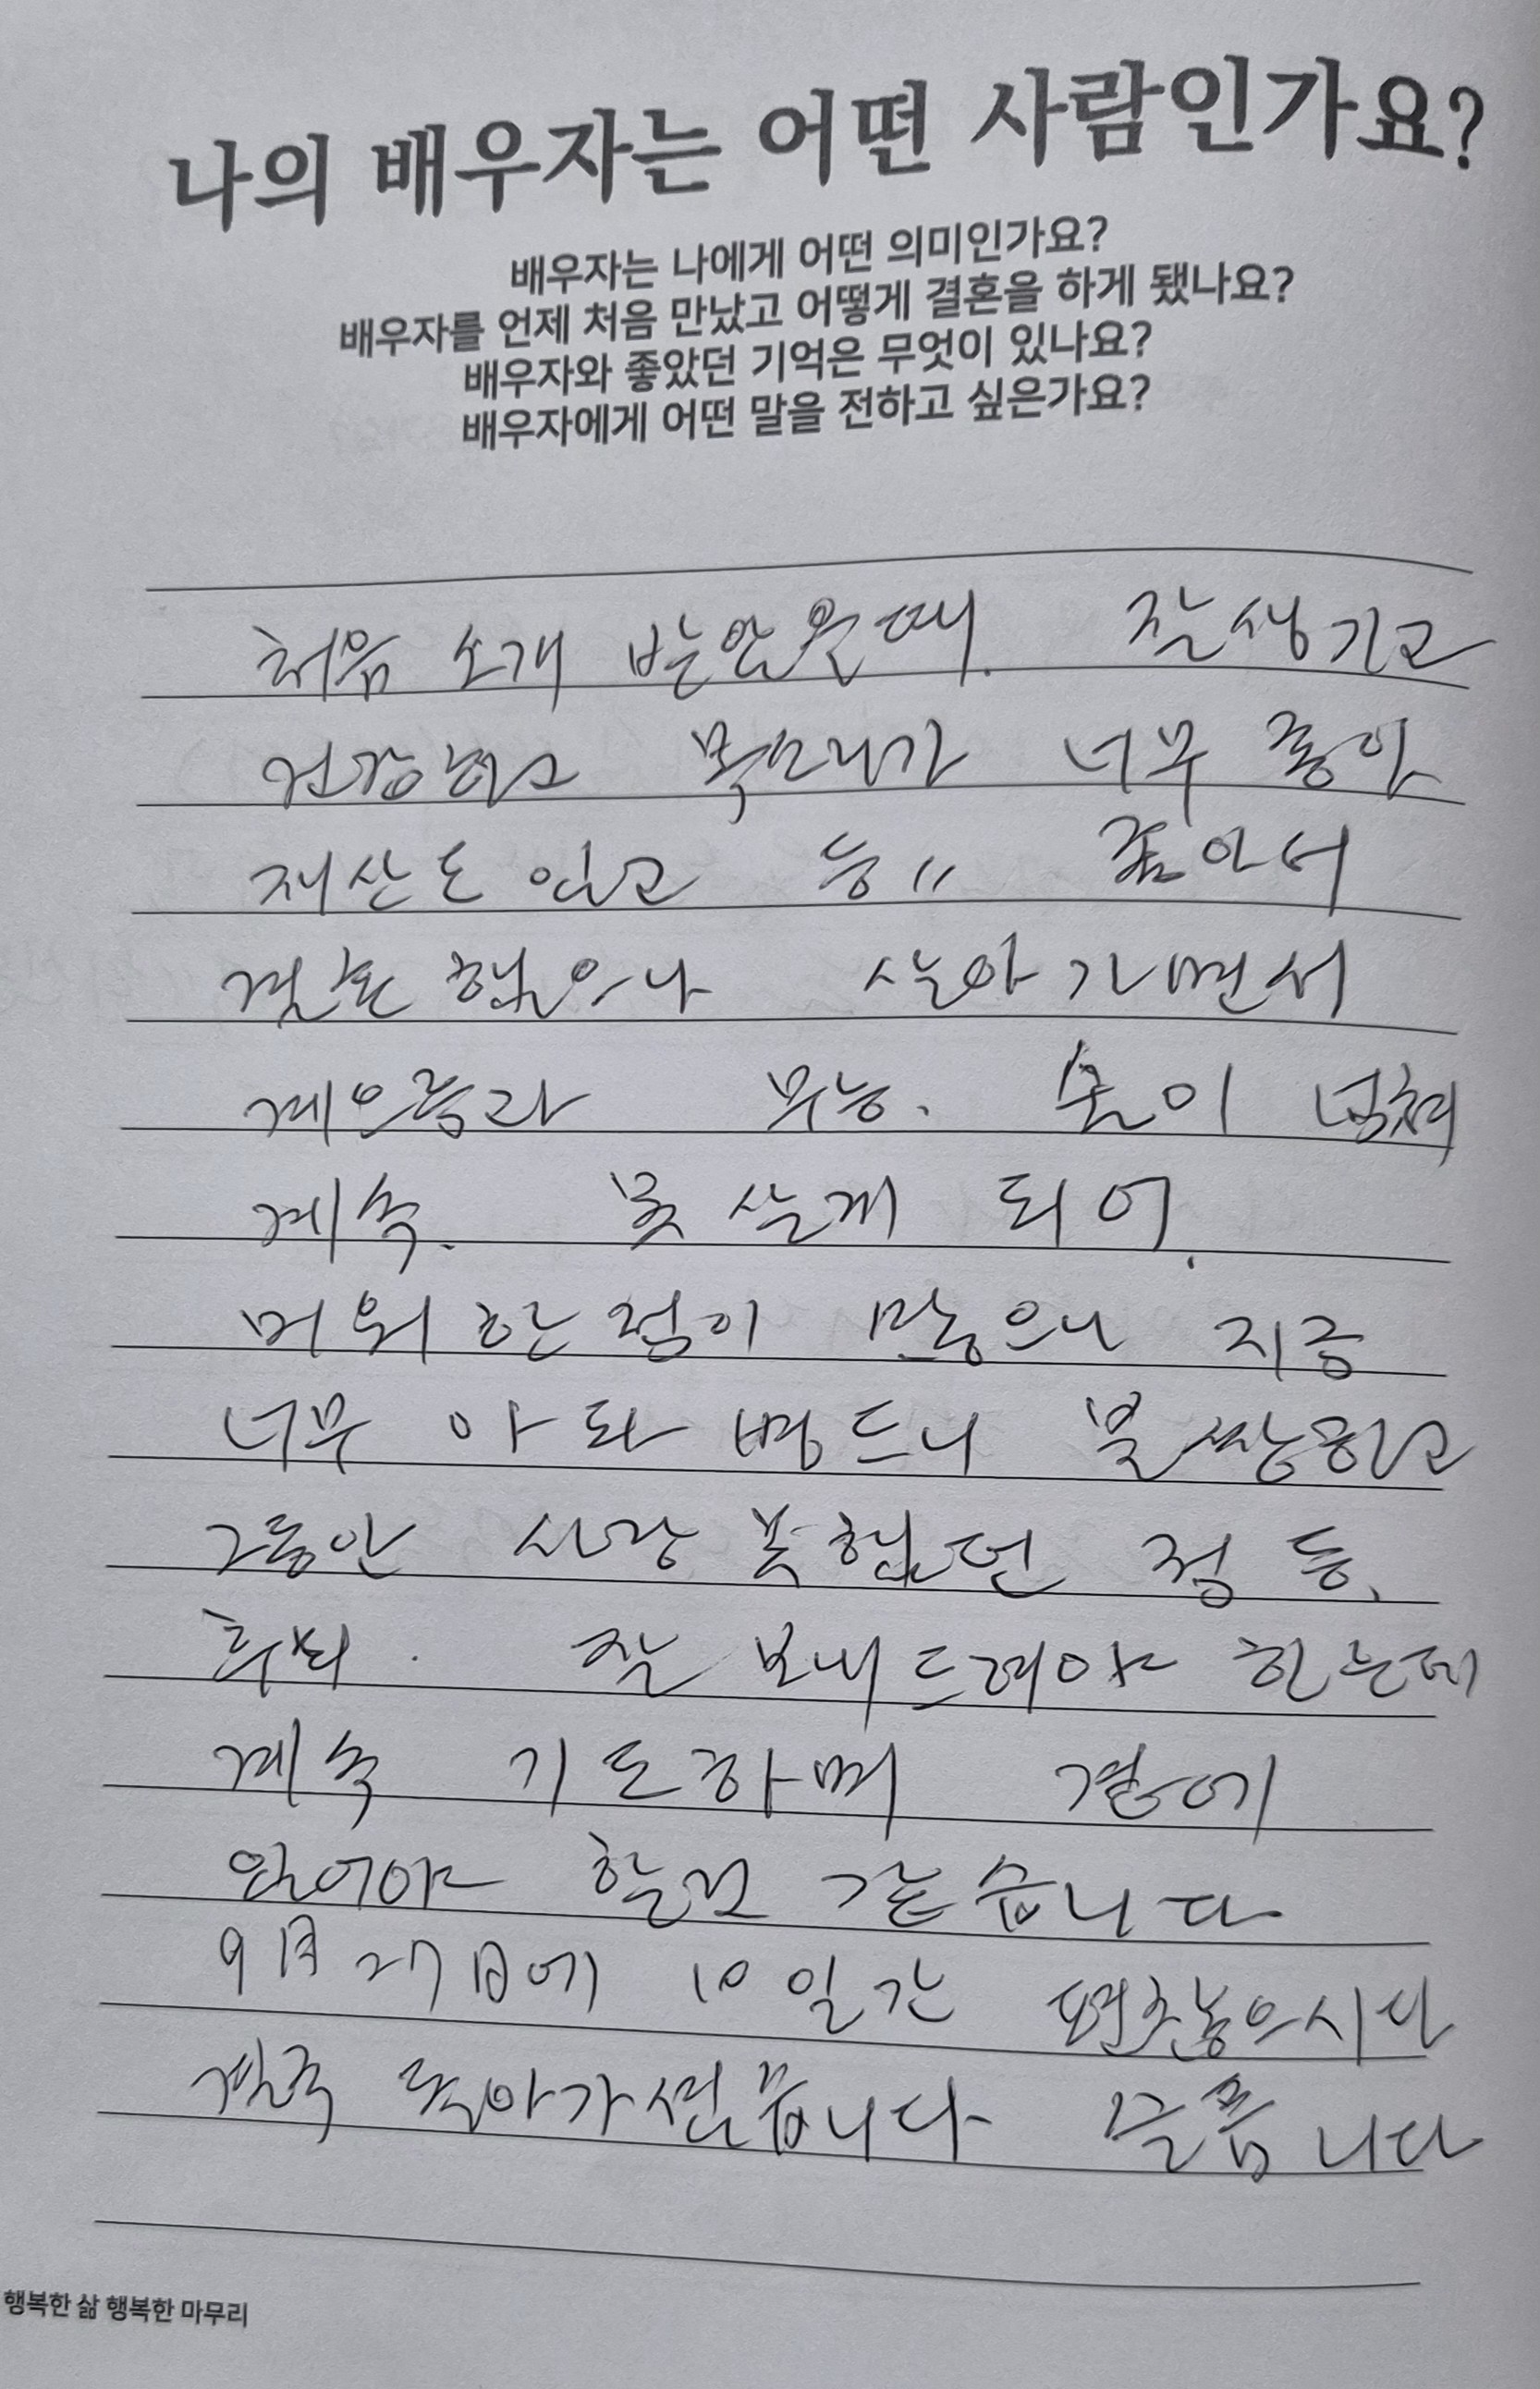 나의 배우자는 어떤 사람인가요?
배우자는 나에게 어떤 의미인가요?
배우자를 언제 처음 만났고 어떻게 결혼을 하게 됐나요?
배우자와 좋았던 기억은 무엇이 있나요?
배우자에게 어떤 말을 전하고 싶은가요?
처음 소개 받았을때. 잘생기고
건강하고 목소리가 너무 좋아
재산도 있고 등〃 좋아서
결혼했으나 살아가면서
게으름과 무능. 술이 넘쳐
계속. 못살게 되어.
미워한점이 많으나 지금
너무 아파 병드니 불쌍하고
그동안 사랑 못했던 점 등.
후회. 잘 보내드려야 하는데
계속 기도하며 곁에
있어야 할것 같습니다
9月 27日에 10일간 편찮으시다
결국 돌아가셨읍니다 슬픔니다
행복한 삶 행복한 마무리